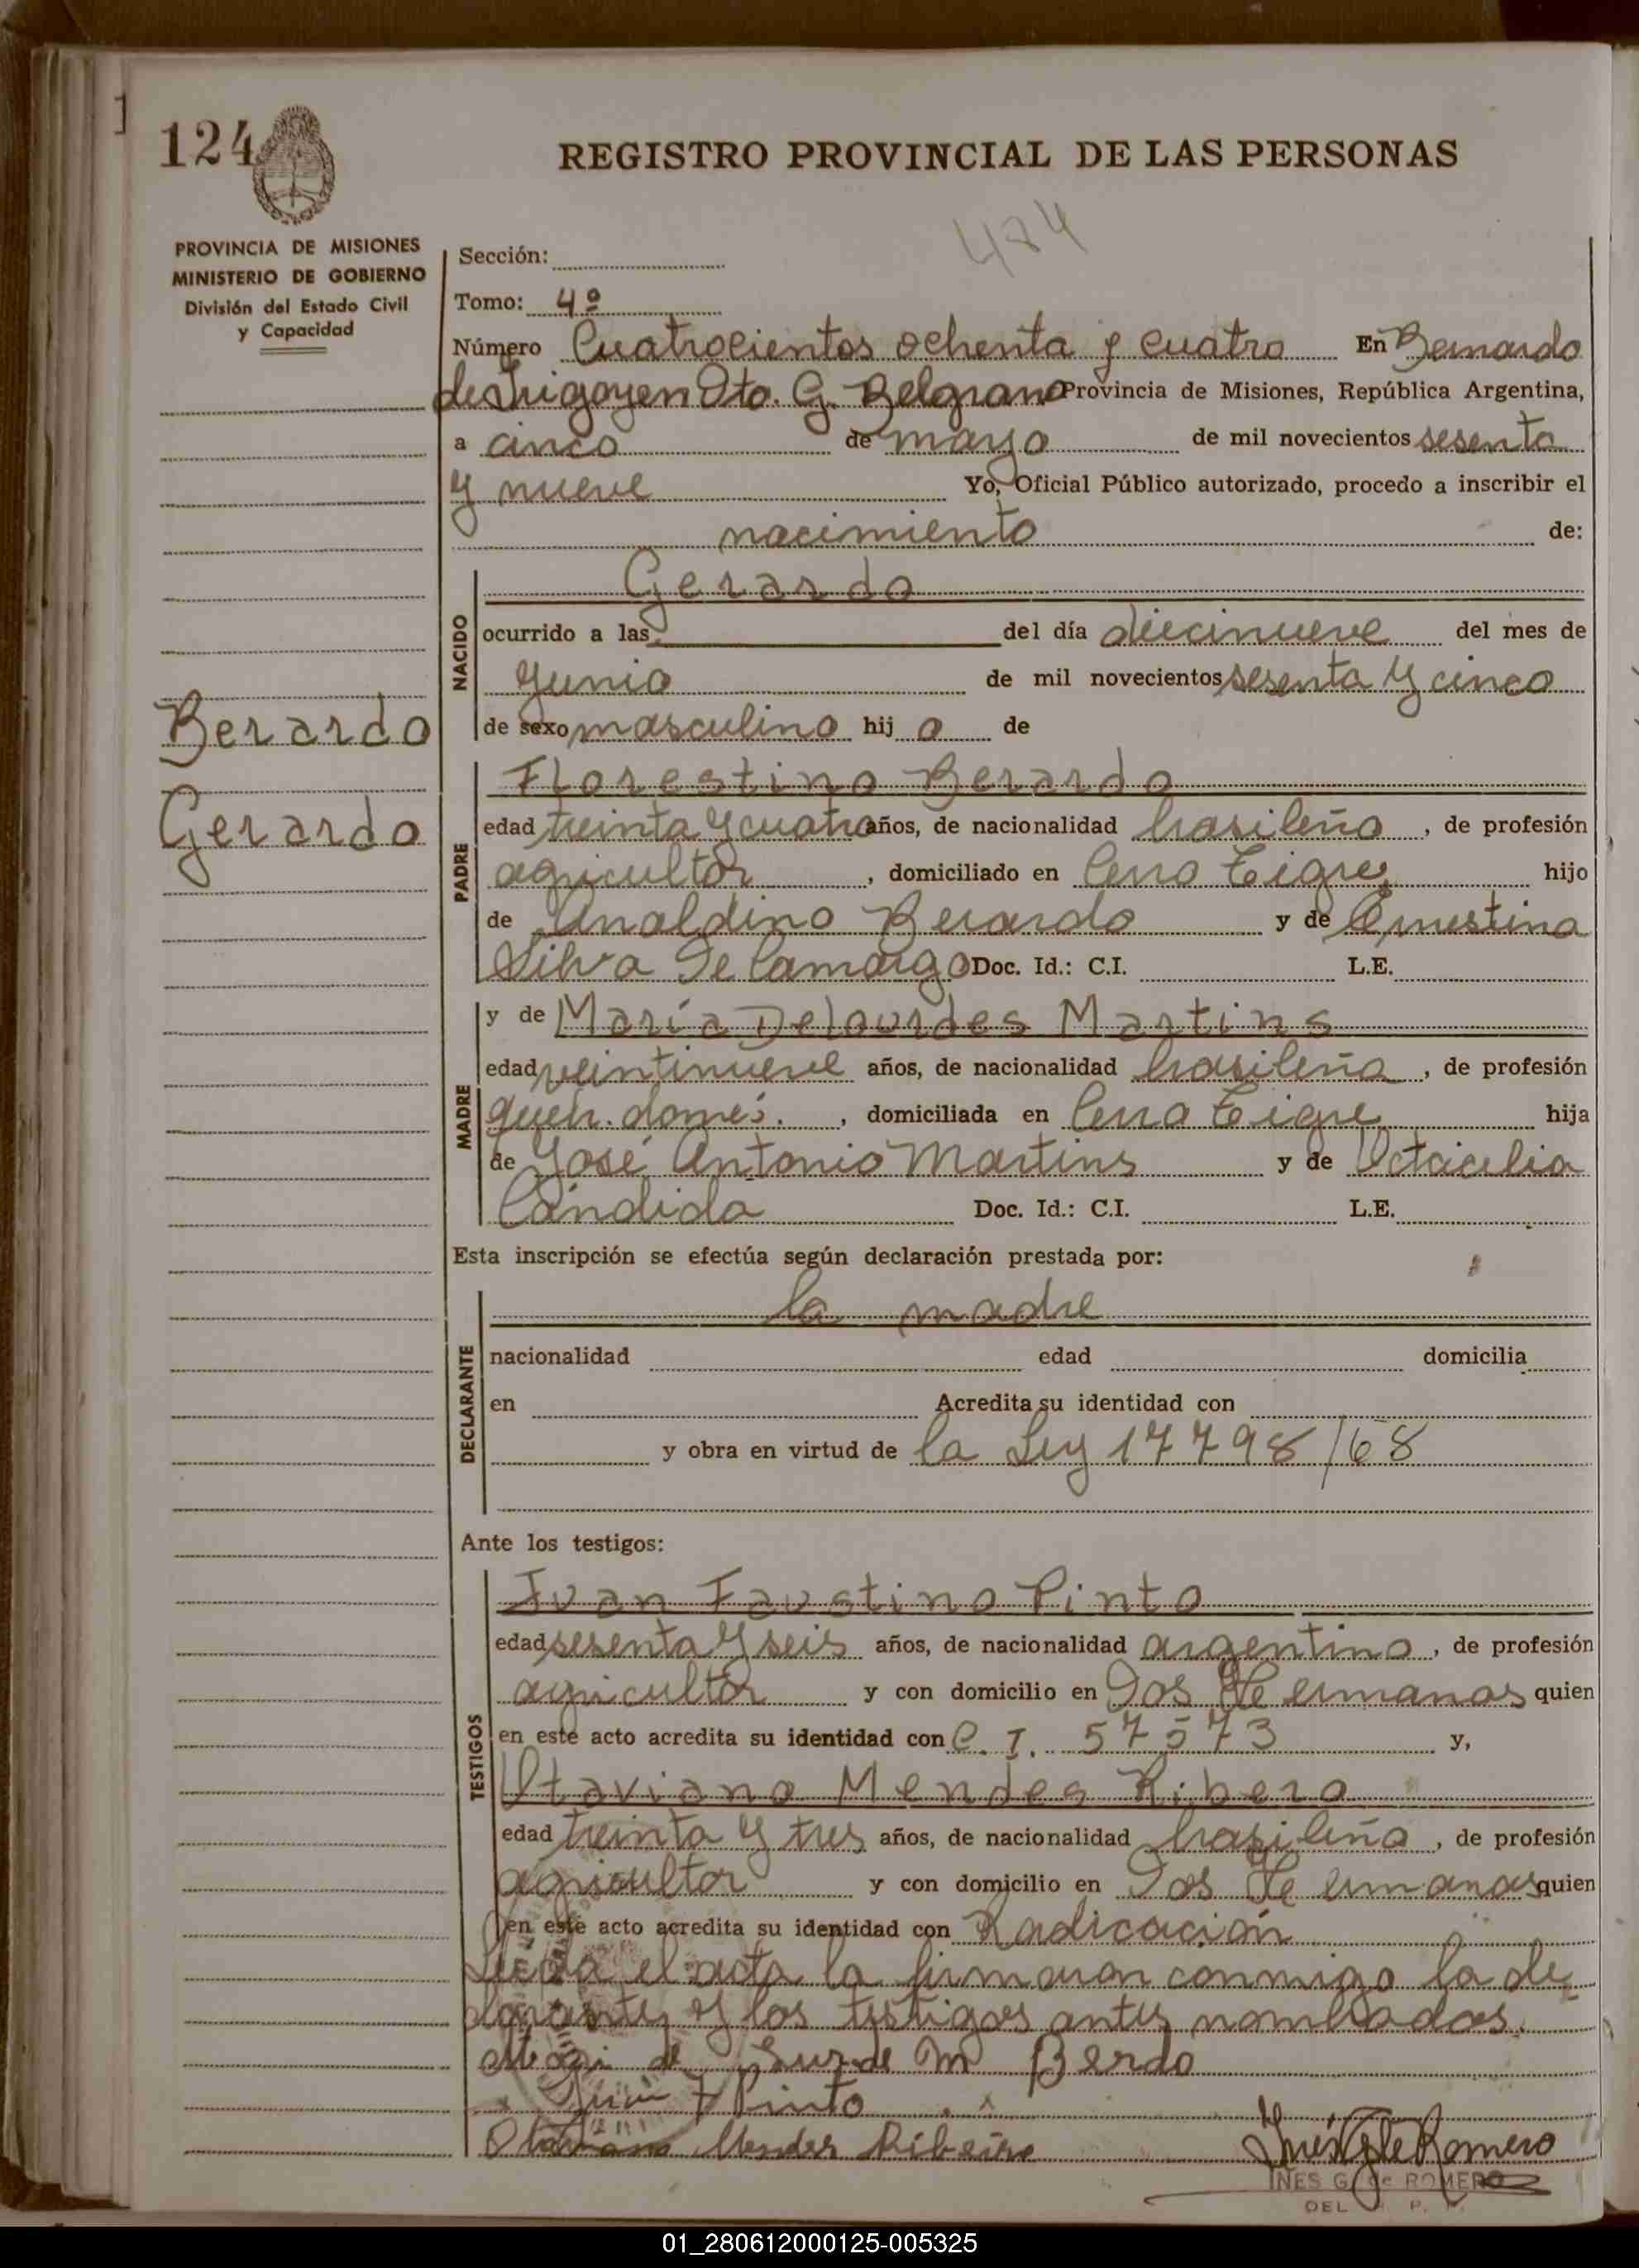 124
REGISTRO PROVINCIAL DE LAS PERSONAS
484
PROVINCIA DE MISIONES
MINISTERIO DE GOBIERNO
División del Estado Civil
y Capacidad
Sección:
Tomo: 4º
Número Cuatrocientos ochenta y cuatro En Bernardo
de Irigoyen Dto. G. Belgrano Provincia de Misiones, República Argentina,
a cinco de mayo de mil novecientos sesenta
y nueve Yo, Oficial Público autorizado, procedo a inscribir el
nacimiento de:
Berardo
Gerardo
NACIDO
Gerardo
ocurrido a las del día diecinueve del mes de
Junio de mil novecientos sesenta y cinco
de sexo masculino hij o de
PADRE
Florestino Berardo
edad treinta y cuatro años, de nacionalidad brasileña, de profesión
agricultor, domiciliado en Cerro Tigre, hijo
de Analdino Berardo y de Ernestina
Silva De Camargo Doc. Id.: C.I. L.E.
MADRE
y de María Delourdes Martins
edad veintinueve años, de nacionalidad brasileña, de profesión
queh. domés., domiciliada en Cerro Tigre hija
de José Antonio Martins y de Octacilia
Cándida Doc. Id.: C.I. L.E.
Esta inscripción se efectúa según declaración prestada por:
DECLARANTE
la madre
nacionalidad edad domicilia
en Acredita su identidad con
y obra en virtud de la Ley 17798/68
Ante los testigos:
TESTIGOS
Juan Faustino Pinto
edad sesenta y seis años, de nacionalidad argentino, de profesión
agricultor y con domicilio en Dos Hermanas quien
en este acto acredita su identidad con C. I. 57573 y,
Otaviano Mendes Ribero
edad treinta y tres años, de nacionalidad brasileña, de profesión
agricultor y con domicilio en Dos Hermanas quien
en este acto acredita su identidad con Radicación
Leída el acta la firmaron conmigo la de
clarante y los testigos antes nombrados.
de Lurde M Berdo
Juan F Pinto
Otaviano Mendes Ribeiro
Inés G de Romero
INES G. de ROMERO
DEL
01_280612000125-005325